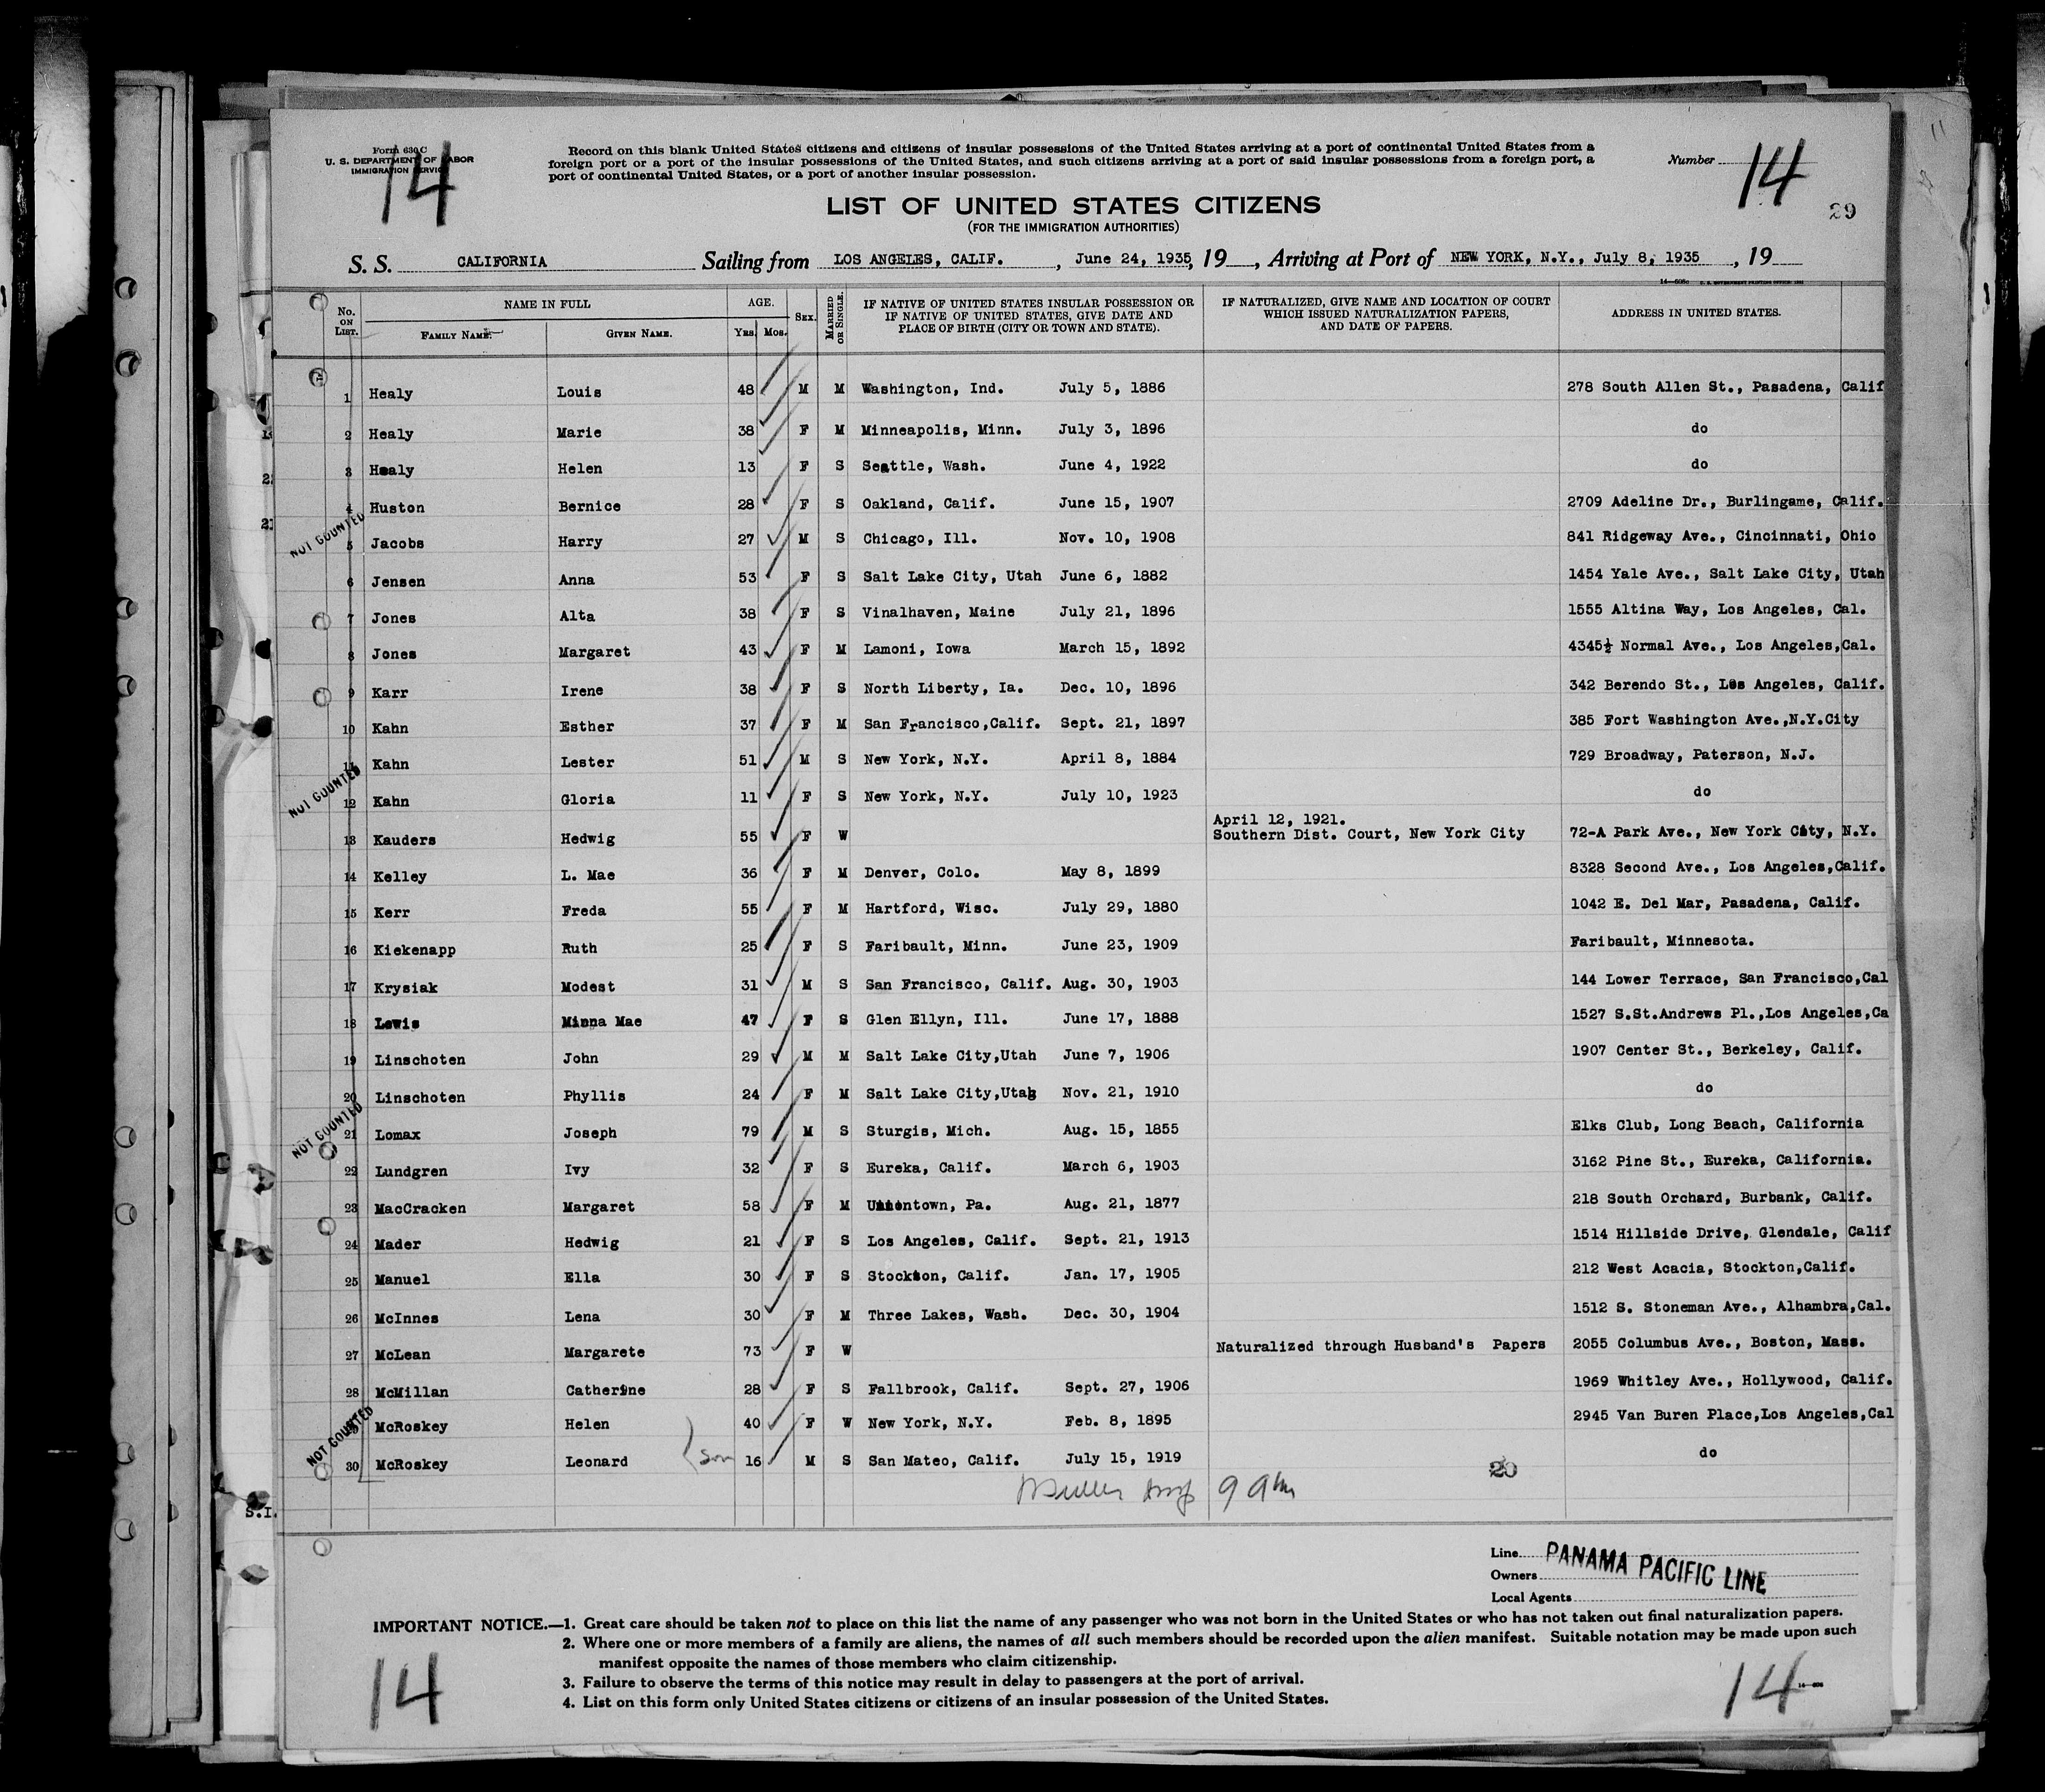 Form 630 C
U. S. DEPARTMENT OF LABOR
IMMIGRATION SERVICE
14
Record on this blank United States citizens and citizens of insular possessions of the United States arriving at a port of continental United States from a
foreign port or a port of the insular possessions of the United States, and such citizens arriving at a port of said insular possessions from a foreign port, a
port of continental United States, or a port of another insular possession.
Number 14
29
LIST OF UNITED STATES CITIZENS
(FOR THE IMMIGRATION AUTHORITIES)
S. S. CALIFORNIA Sailing from LOS ANGELES, CALIF. , June 24, 1935, 19 , Arriving at Port of NEW YORK, N.Y., July 8, 1935 , 19
No. ON LIST. NAME IN FULL AGE. SEX. MARRIED OR SINGLE. IF NATIVE OF UNITED STATES INSULAR POSSESSION OR IF NATIVE OF UNITED STATES, GIVE DATE AND PLACE OF BIRTH (CITY OR TOWN AND STATE). IF NATURALIZED, GIVE NAME AND LOCATION OF COURT WHICH ISSUED NATURALIZATION PAPERS, AND DATE OF PAPERS. ADDRESS IN UNITED STATES.
FAMILY NAME. GIVEN NAME. YRS. MOS.
1 Healy Louis 48 M M Washington, Ind. July 5, 1886 278 South Allen St., Pasadena, Calif
2 Healy Marie 38 F M Minneapolis, Minn. July 3, 1896 do
3 Healy Helen 13 F S Seattle, Wash. June 4, 1922 do
4 Huston Bernice 28 F S Oakland, Calif. June 15, 1907 2709 Adeline Dr., Burlingame, Calif.
NOT COUNTED
5 Jacobs Harry 27 M S Chicago, Ill. Nov. 10, 1908 841 Ridgeway Ave., Cincinnati, Ohio
6 Jensen Anna 53 F S Salt Lake City, Utah June 6, 1882 1454 Yale Ave., Salt Lake City, Utah
7 Jones Alta 38 F S Vinalhaven, Maine July 21, 1896 1555 Altina Way, Los Angeles, Cal.
8 Jones Margaret 43 F M Lamoni, Iowa March 15, 1892 4345½ Normal Ave., Los Angeles,Cal.
9 Karr Irene 38 F S North Liberty, Ia. Dec. 10, 1896 342 Berendo St., Los Angeles, Calif.
10 Kahn Esther 37 F M San Francisco,Calif. Sept. 21, 1897 385 Fort Washington Ave.,N.Y.City
11 Kahn Lester 51 M S New York, N.Y. April 8, 1884 729 Broadway, Paterson, N.J.
NOT COUNTED
12 Kahn Gloria 11 F S New York, N.Y. July 10, 1923 do
13 Kauders Hedwig 55 F W April 12, 1921. Southern Dist. Court, New York City 72-A Park Ave., New York City, N.Y.
14 Kelley L. Mae 36 F M Denver, Colo. May 8, 1899 8328 Second Ave., Los Angeles,Calif.
15 Kerr Freda 55 F M Hartford, Wisc. July 29, 1880 1042 E. Del Mar, Pasadena, Calif.
16 Kiekenapp Ruth 25 F S Faribault, Minn. June 23, 1909 Faribault, Minnesota.
17 Krysiak Modest 31 M S San Francisco, Calif. Aug. 30, 1903 144 Lower Terrace, San Francisco,Cal
18 Lewis Minna Mae 47 F S Glen Ellyn, Ill. June 17, 1888 1527 S.St.Andrews Pl.,Los Angeles,Ca
19 Linschoten John 29 M M Salt Lake City,Utah June 7, 1906 1907 Center St., Berkeley, Calif.
20 Linschoten Phyllis 24 F M Salt Lake City,Utah Nov. 21, 1910 do
NOT COUNTED
21 Lomax Joseph 79 M S Sturgis, Mich. Aug. 15, 1855 Elks Club, Long Beach, California
22 Lundgren Ivy 32 F S Eureka, Calif. March 6, 1903 3162 Pine St., Eureka, California.
23 MacCracken Margaret 58 F M Uniontown, Pa. Aug. 21, 1877 218 South Orchard, Burbank, Calif.
24 Mader Hedwig 21 F S Los Angeles, Calif. Sept. 21, 1913 1514 Hillside Drive, Glendale, Calif
25 Manuel Ella 30 F S Stockton, Calif. Jan. 17, 1905 212 West Acacia, Stockton,Calif.
26 McInnes Lena 30 F M Three Lakes, Wash. Dec. 30, 1904 1512 S. Stoneman Ave., Alhambra,Cal.
27 McLean Margarete 73 F W Naturalized through Husband's Papers 2055 Columbus Ave., Boston, Mass.
28 McMillan Catherine 28 F S Fallbrook, Calif. Sept. 27, 1906 1969 Whitley Ave., Hollywood, Calif.
NOT COUNTED
29 McRoskey Helen 40 F W New York, N.Y. Feb. 8, 1895 2945 Van Buren Place,Los Angeles,Cal
30 McRoskey Leonard son 16 M S San Mateo, Calif. July 15, 1919 do
20
S.I.
Line PANAMA PACIFIC LINE
Owners
Local Agents
IMPORTANT NOTICE.—1. Great care should be taken not to place on this list the name of any passenger who was not born in the United States or who has not taken out final naturalization papers.
2. Where one or more members of a family are aliens, the names of all such members should be recorded upon the alien manifest. Suitable notation may be made upon such
manifest opposite the names of those members who claim citizenship.
3. Failure to observe the terms of this notice may result in delay to passengers at the port of arrival.
4. List on this form only United States citizens or citizens of an insular possession of the United States.
14
14